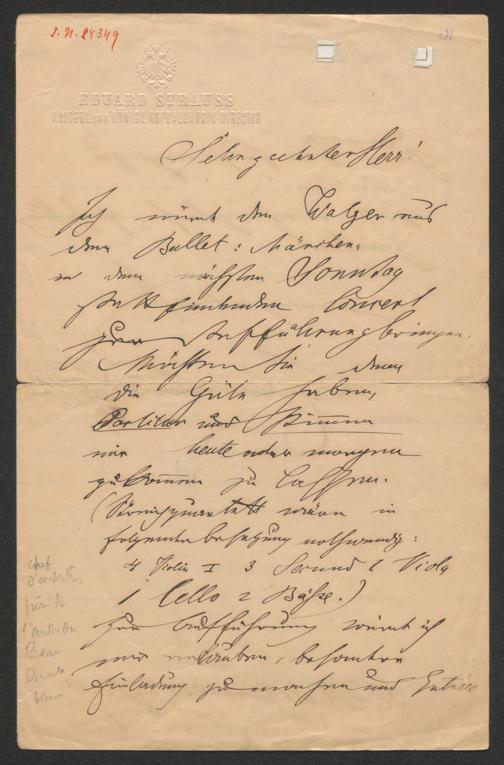 J.N. 24349
EDUARD STRAUSS
KAISERL. UND KÖNIGL. HOFBALLMUSIK-DIRECTOR
Sehr geehrter Herr!
Ich würde den Walzer aus
dem Ballet: Märchen
in dem nächsten Sonntag
stattfindenden Concert
zur Aufführung bringen.
Möchten Sie denn
die Güte haben,
Partitur und Stimmen
mir heute oder morgen
zukommen zu lassen.
(Streichquartett wären in
folgender Besetzung nothwendig:
4 Violin I 3 Secund 2 Viola
1 Cello 2 Bässe.)
Zur Aufführung würde ich
mir erlauben, besondere
Einladung zu machen und Entrée
chef
d'orchestre,
frère de
l'auteur du
Beau
Danube
bleu